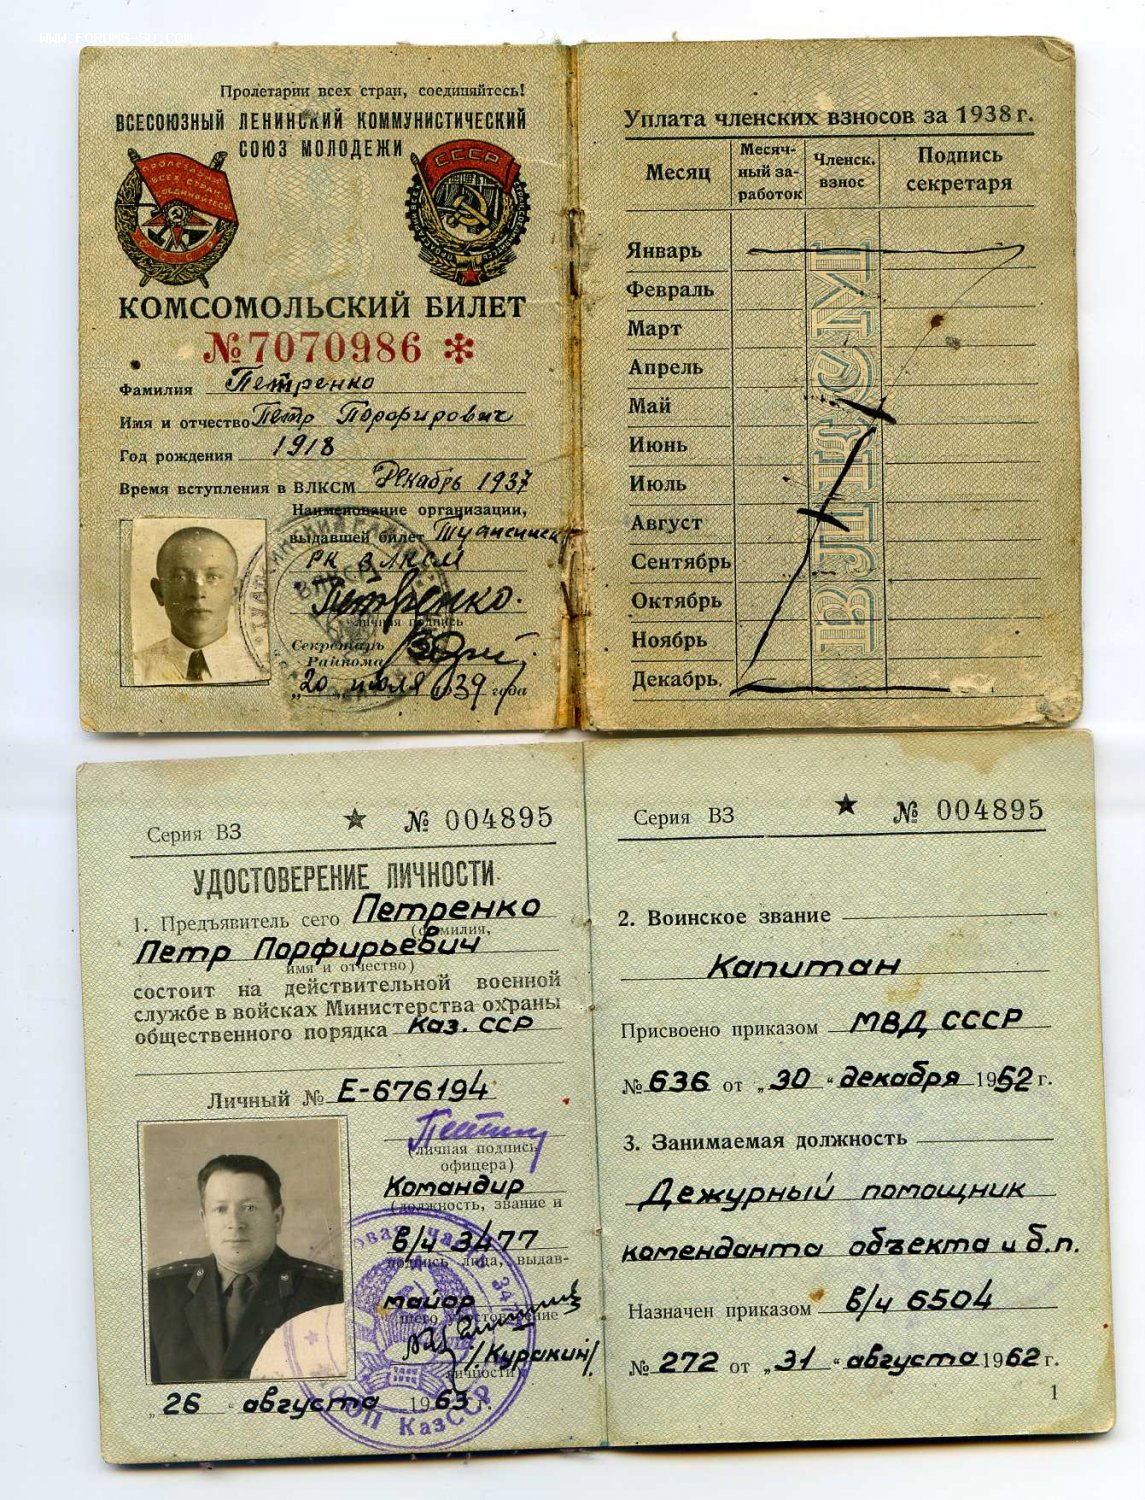 WWW.FORUMS-SU.COM
Пролетарии всех стран, соединяйтесь!
ВСЕСОЮЗНЫЙ ЛЕНИНСКИЙ КОММУНИСТИЧЕСКИЙ
СОЮЗ МОЛОДЕЖИ
ПРОЛЕТАРИИ
ВСЕХ СТРАН,
СОЕДИНЯЙТЕСЬ
СССР
СССР
КОМСОМОЛЬСКИЙ БИЛЕТ
№7070986 *
Фамилия Петренко
Имя и отчество Петр Порфирович
Год рождения 1918
Время вступления в ВЛКСМ Декабрь 1937
Наименование организации,
выдавшей билет Туапсинск
РК ВЛКСМ
Петренко.
личная подпись
Секретарь
Райкома
„20 „ июля 1939 года
Уплата членских взносов за 1938 г.
Месяц
Месяч-
ный за-
работок
Членск.
взнос
Подпись
секретаря
Январь
Февраль
Март
Апрель
Май
Июнь
Июль
Август
Сентябрь
Октябрь
Ноябрь
Декабрь
ВЛКСМ
Серия ВЗ ★ № 004895
УДОСТОВЕРЕНИЕ ЛИЧНОСТИ
1. Предъявитель сего Петренко
(фамилия,
Петр Порфирьевич
имя и отчество)
состоит на действительной военной
службе в войсках Министерства охраны
общественного порядка Каз. ССР
Личный № Е-676194
(личная подпись
офицера)
Командир
(должность, звание и
в/ч 3477
подпись лица, выдав-
майор
шего удостоверение
/Куракин/
личности)
„26 “ августа 1963 г.
МООП КазССР
Серия ВЗ ★ № 004895
2. Воинское звание
Капитан
Присвоено приказом МВД СССР
№ 636 от „30 “ декабря 1952 г.
3. Занимаемая должность
Дежурный помощник
коменданта объекта и б.п.
Назначен приказом в/ч 6504
№ 272 от „31 “ августа 1962 г.
1